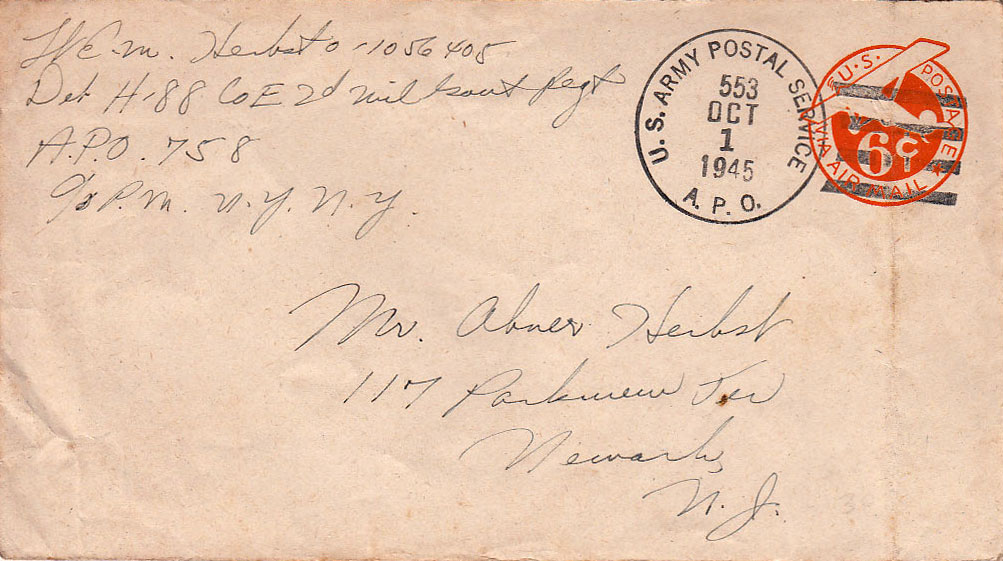 Lt E. M. Herbst O-1056405
Det H-88 Co E 2d Mil Govt Regt
A.P.O. 758
c/o P.M. N.Y. N.Y.
U.S. ARMY POSTAL SERVICE
553
OCT
1
1945
A. P. O.
U.S. POSTAGE
6¢
VIA AIR MAIL
Mr. Abner Herbst
117 Parkview Ter
Newark,
N.J.